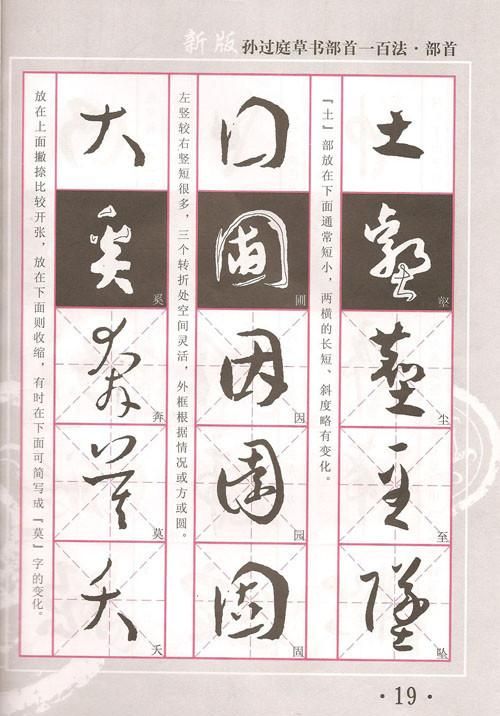 新版 孙过庭草书部首一百法·部首
土
『土』部放在下面通常短小，两横的长短、斜度略有变化。
壑
尘
至
坠
囗
左竖较右竖短很多，三个转折处空间灵活，外框根据情况或方或圆。
圃
因
园
固
大
放在上面撇捺比较开张，放在下面则收缩，有时在下面可简写成『莫』字的变化。
奚
奔
莫
夭
·19·